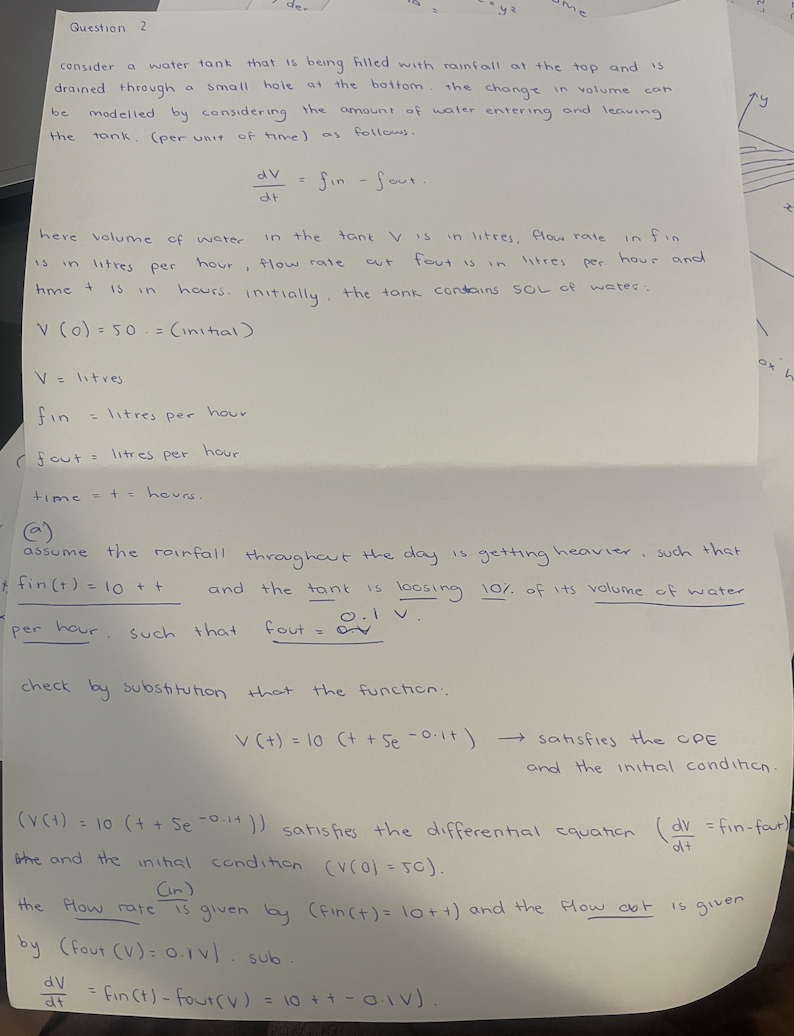 Question 2
consider a water tank that is being filled with rainfall at the top and is
drained through a small hole at the bottom. the change in volume can
be modelled by considering the amount of water entering and leaving
the tank. (per unit of time) as follows.
dV/dt = fin - fout.
here volume of water in the tank V is in litres, flow rate in fin
is in litres per hour, flow rate out fout is in litres per hour and
time t is in hours. initially, the tank contains 50L of water.
V(0) = 50 . = (initial)
V = litres
fin = litres per hour
fout = litres per hour
time = t = hours.
(a)
assume the rainfall throughout the day is getting heavier, such that
fin(t) = 10 + t and the tank is loosing 10% of its volume of water
per hour. such that fout = 0.1 V.
check by substitution that the function:
V(t) = 10 (t + 5e^-0.1t) → satisfies the ODE
and the initial condition.
(V(t) = 10 (t + 5e^-0.1t)) satisfies the differential equation (dV/dt = fin-fout)
and the initial condition (V(0) = 50).
the flow rate (in) is given by (fin(t) = 10 + t) and the flow out is given
by (fout (V) = 0.1V). sub.
dV/dt = fin(t) - fout(V) = 10 + t - 0.1V).
y